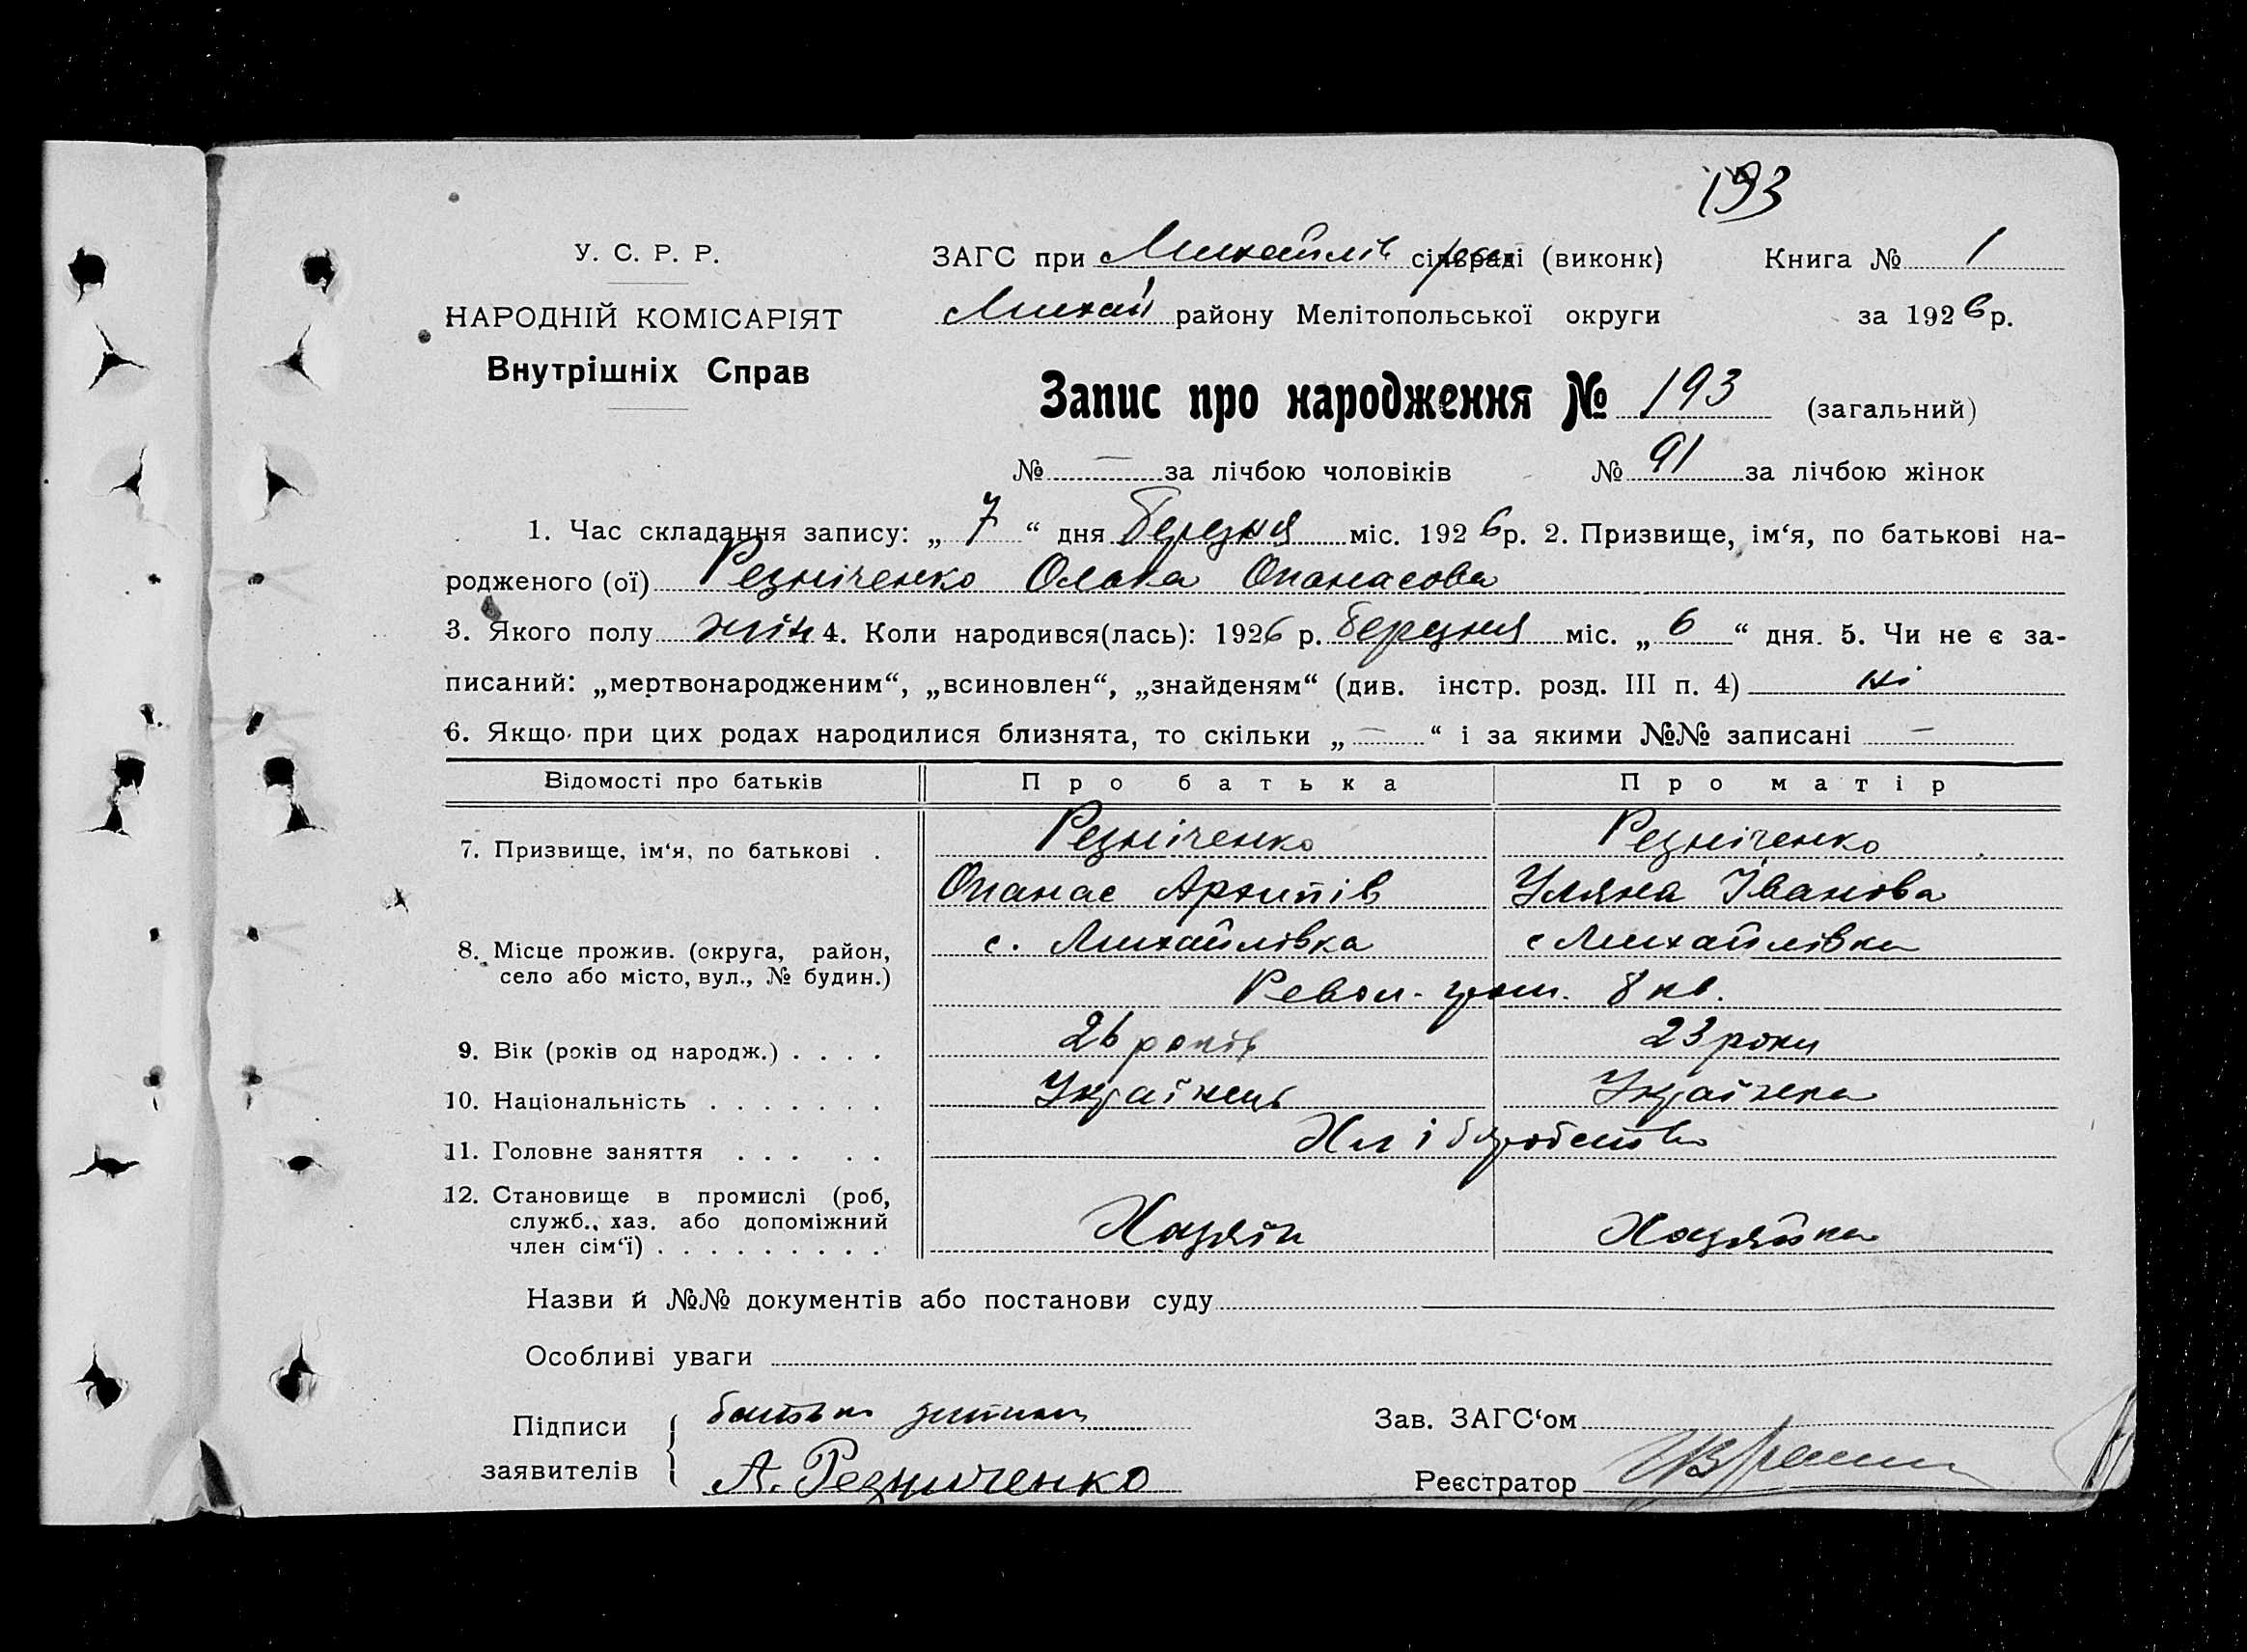 193
У. С. Р. Р.
НАРОДНІЙ КОМІСАРІЯТ
Внутрішніх Справ
ЗАГС при Михайлів сільраді (виконк) Книга № 1
Михай району Мелітопольської округи за 1926 р.
Запис про народження № 193 (загальний)
№ — за лічбою чоловіків № 91 за лічбою жінок
1. Час складання запису: „ 7 “ дня Березня міс. 1926 р. 2. Призвище, ім‘я, по батькові на-
родженого (ої) Резніченко Олана Опанасова
3. Якого полу жін 4. Коли народився(лась): 1926 р. березня міс. „ 6 “ дня. 5. Чи не є за-
писаний: „мертвонародженим“, „всиновлен“, „знайденям“ (див. інстр. розд. III п. 4) ні
6. Якщо при цих родах народилися близнята, то скільки „ — “ і за якими №№ записані —
Відомості про батьків Про батька Про матір
7. Призвище, ім‘я, по батькові . Резніченко Резніченко
Опанас Архипів Уляна Іванова
8. Місце прожив. (округа, район, с. Михайлівка с Михайлівка
село або місто, вул., № будин.) Револ. 8 кв.
9. Вік (років од народж.) . . . . 26 років 23 роки
10. Національність . . . . . . . Українець Українка
11. Головне заняття . . . . . Хліборобство
12. Становище в промислі (роб,
служб., хаз. або допоміжний
член сім‘ї) . . . . . . . . . . Хазяїн Хазяйка
Назви й №№ документів або постанови суду
Особливі уваги
Підписи батько дитини Зав. ЗАГС‘ом
заявителів А. Резниченко Реєстратор